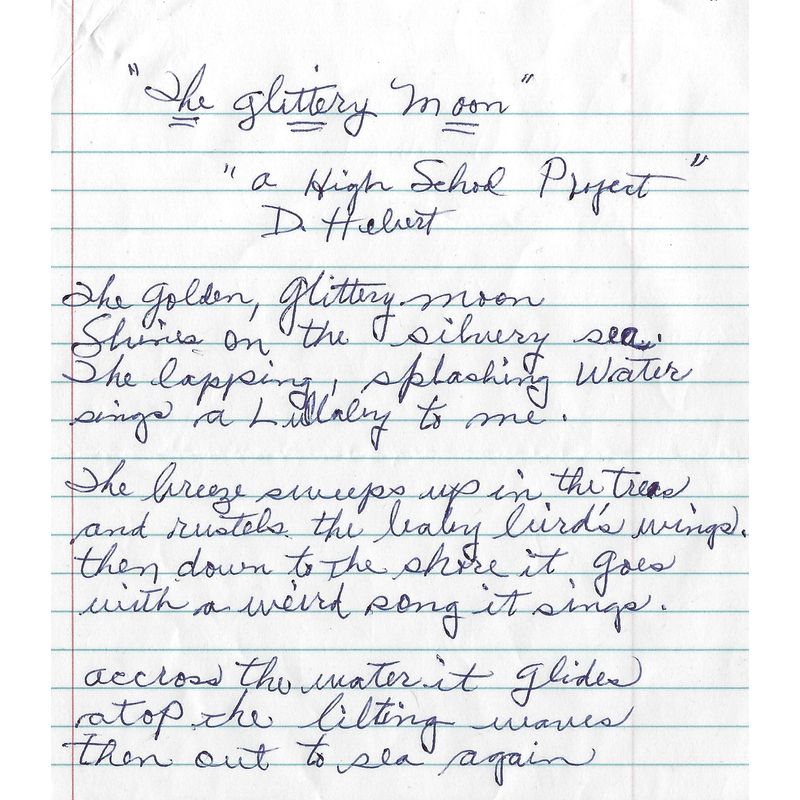 "The glittery Moon"
"a High School Project"
D. Hebert
The golden, glittery moon
Shines on the silvery sea.
The lapping, splashing Water
sings a Lullaby to me.
The breeze sweeps up in the trees
and rustels the baby bird's wings.
then down to the shore it goes
with a weird song it sings.
accross the water it glides
atop the lilting waves
then out to sea again